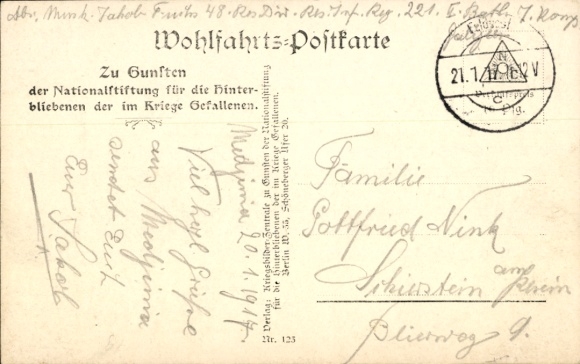 Abs. Musk. Jakob 48. Res. Div. Res. Inf. Reg. 221. II. Batl. 7. Komp
Feldpost
Wohlfahrts-Postkarte
21.1.17. 12 V
Zu Gunsten
der Nationalstiftung für die Hinter-
bliebenen der im Kriege Gefallenen.
Medjimia 20.1.1917
Viel herzl. Grüße
aus Medjimia
sendet Euch
Euer Jakob
Verlag: Kriegsbilder-Zentrale zu Gunsten der Nationalstiftung
für die Hinterbliebenen der im Kriege Gefallenen.
Berlin W. 35, Schöneberger Ufer 20.
Nr. 123
Familie
Gottfried Nink
Schierstein am Rhein
Blierweg 9.